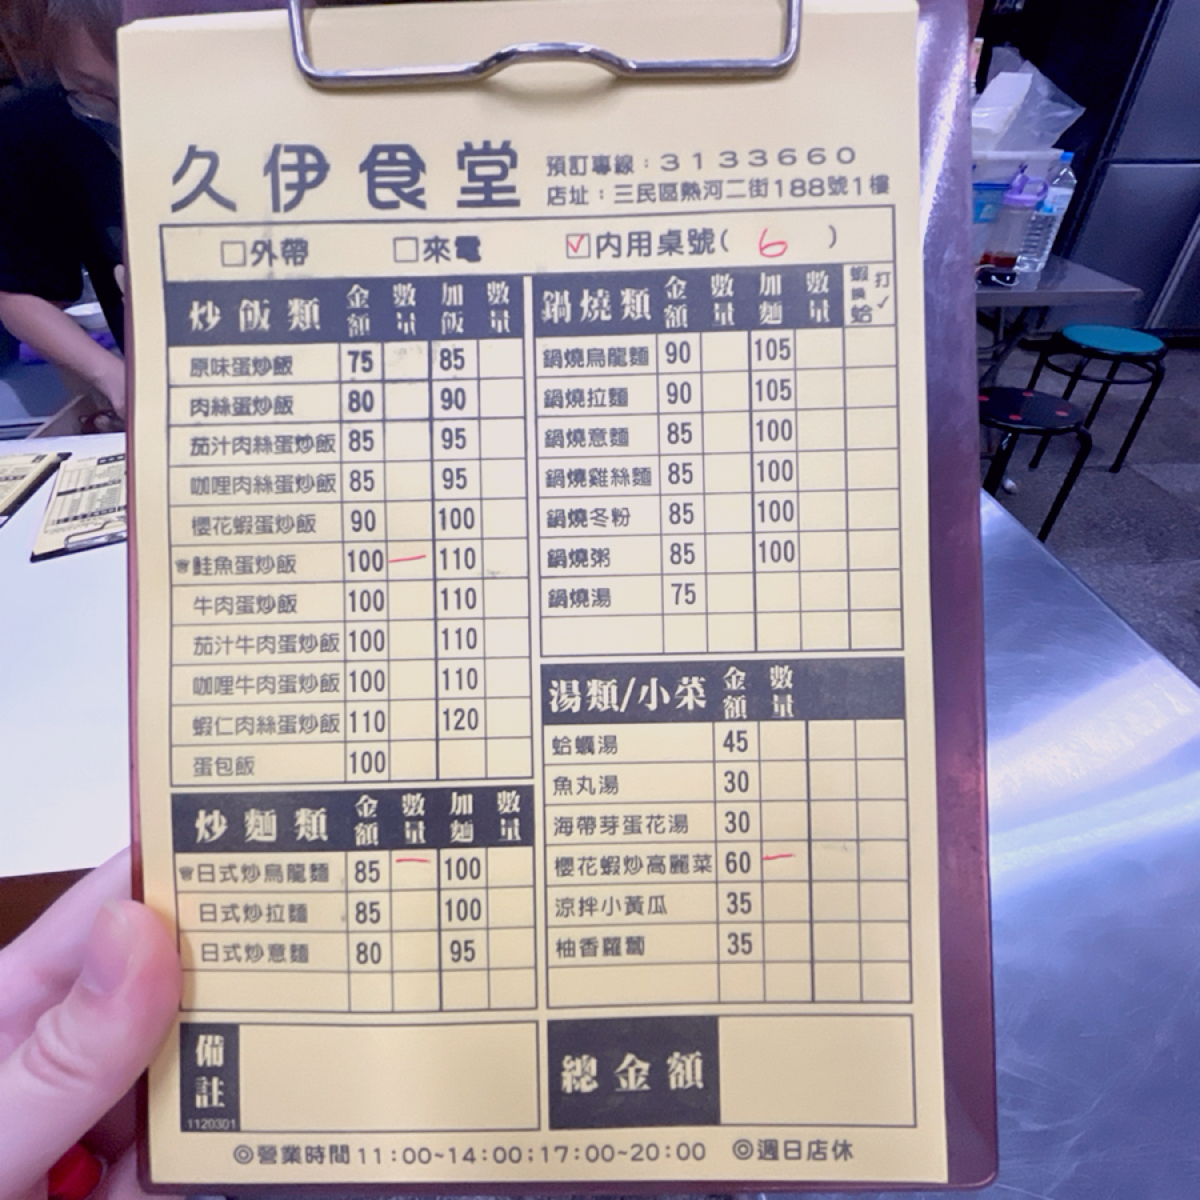 久伊食堂
預訂專線：3133660
店址：三民區熱河二街188號1樓
□外帶 □來電 ☑內用桌號( 6 )
炒飯類 金額 數量 加飯 數量
原味蛋炒飯 75 85
肉絲蛋炒飯 80 90
茄汁肉絲蛋炒飯 85 95
咖哩肉絲蛋炒飯 85 95
櫻花蝦蛋炒飯 90 100
鮭魚蛋炒飯 100 一 110
牛肉蛋炒飯 100 110
茄汁牛肉蛋炒飯 100 110
咖哩牛肉蛋炒飯 100 110
蝦仁肉絲蛋炒飯 110 120
蛋包飯 100
炒麵類 金額 數量 加麵 數量
日式炒烏龍麵 85 一 100
日式炒拉麵 85 100
日式炒意麵 80 95
備註
1120301
鍋燒類 金額 數量 加麵 數量 蝦換蛤 打✓
鍋燒烏龍麵 90 105
鍋燒拉麵 90 105
鍋燒意麵 85 100
鍋燒雞絲麵 85 100
鍋燒冬粉 85 100
鍋燒粥 85 100
鍋燒湯 75
湯類/小菜 金額 數量
蛤蠣湯 45
魚丸湯 30
海帶芽蛋花湯 30
櫻花蝦炒高麗菜 60 一
涼拌小黃瓜 35
柚香蘿蔔 35
總金額
◎營業時間11:00~14:00;17:00~20:00 ◎週日店休